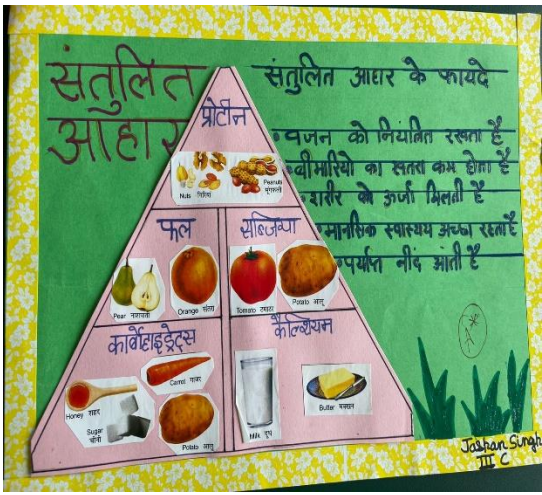 संतुलित
आहार
संतुलित आहार के फायदे
• वजन को नियंत्रित रखता है
• बीमारियो का खतरा कम होता है
• शरीर को ऊर्जा मिलती है
• मानसिक स्वास्थय अच्छा रहता है
• पर्याप्त नींद आती है
प्रोटीन
Nuts गिरियां
Peanuts मूंगफली
फल
सब्जिया
Pear नाशपाती
Orange संतरा
Tomato टमाटर
Potato आलू
कार्बोहाइड्रेट्स
कैल्शियम
Honey शहद
Sugar चीनी
Carrot गाजर
Potato आलू
Milk दूध
Butter मक्खन
Jashan Singh
III C